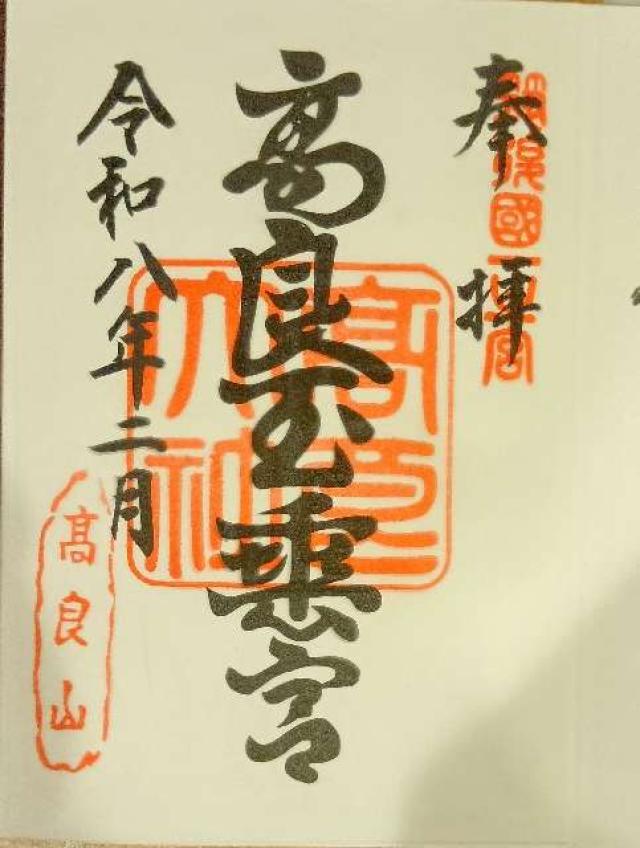 奉拝
筑後國一宮
高良玉垂宮
高良大
令和八年二月
高良山